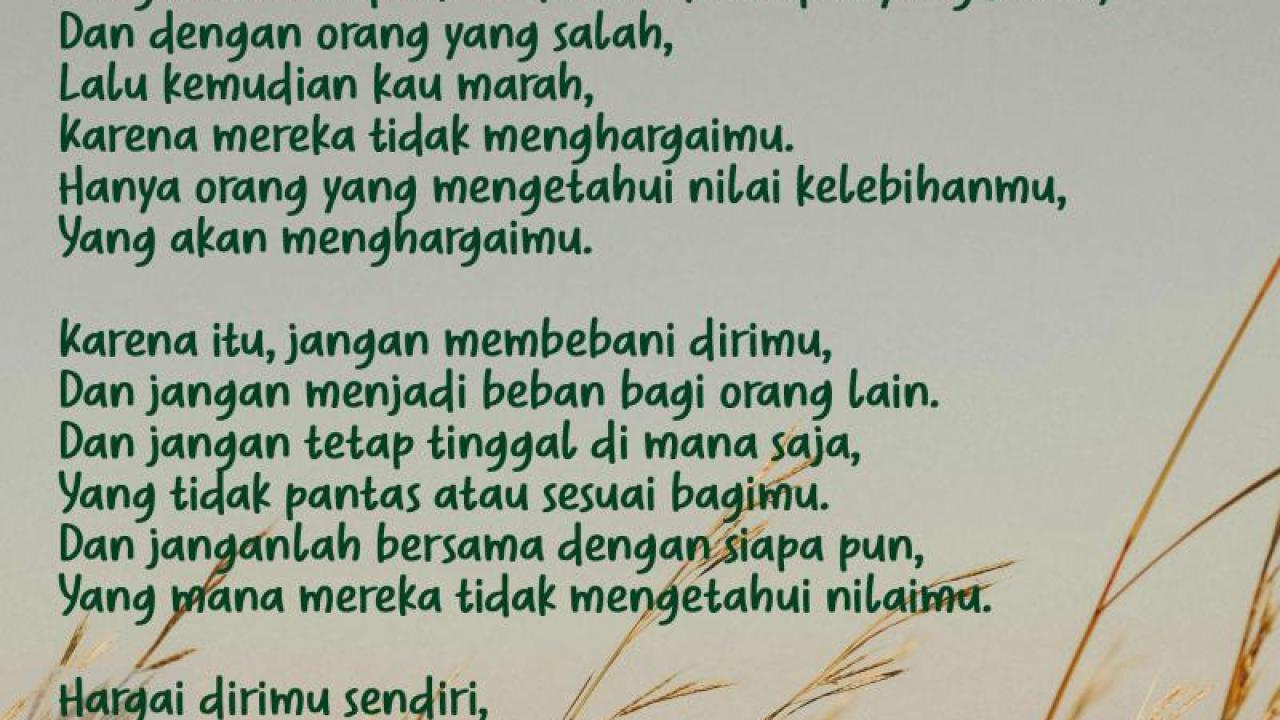 Dan dengan orang yang salah,
Lalu kemudian kau marah,
Karena mereka tidak menghargaimu.
Hanya orang yang mengetahui nilai kelebihanmu,
Yang akan menghargaimu.
Karena itu, jangan membebani dirimu,
Dan jangan menjadi beban bagi orang lain.
Dan jangan tetap tinggal di mana saja,
Yang tidak pantas atau sesuai bagimu.
Dan janganlah bersama dengan siapa pun,
Yang mana mereka tidak mengetahui nilaimu.
Hargai dirimu sendiri,